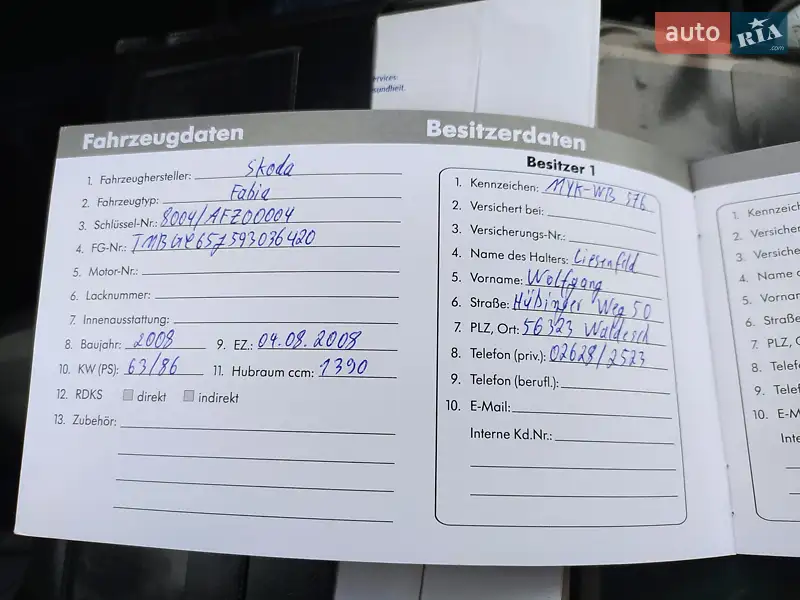 auto RIA .com
ervices
sundheit.
Fahrzeugdaten
1. Fahrzeughersteller: Skoda
2. Fahrzeugtyp: Fabia
3. Schlüssel-Nr.: 8004/AFZ00004
4. FG-Nr.: TMB
5. Motor-Nr.:
6. Lacknummer:
7. Innenausstattung:
8. Baujahr: 2008 9. EZ.: 04.08.2008
10. KW (PS): 63/86 11. Hubraum ccm: 1390
12. RDKS direkt indirekt
13. Zubehör:
Besitzerdaten
Besitzer 1
1. Kennzeichen: MYK-WB 576
2. Versichert bei:
3. Versicherungs-Nr.:
4. Name des Halters: Liesenfeld
5. Vorname: Wolfgang
6. Straße: Weg 50
7. PLZ, Ort: 56323 Waldesch
8. Telefon (priv.): 02628/2523
9. Telefon (berufl.):
10. E-Mail:
Interne Kd.Nr.:
1. Kennzeich
2. Versicher
3. Versiche
4. Name d
5. Vornar
6. Straße
7. PLZ, C
8. Telef
9. Tele
10. E-M
Inte